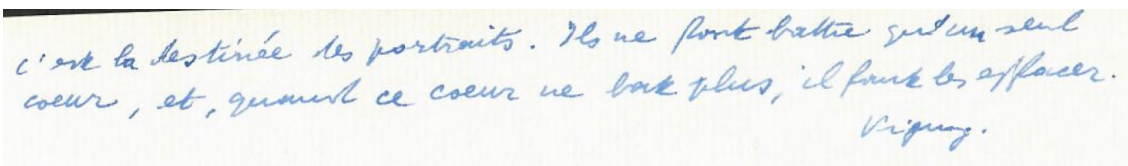 c'est la destinée des portraits. Ils ne font battre qu'un seul
coeur, et, quand ce coeur ne bat plus, il faut les effacer.
Vigny.